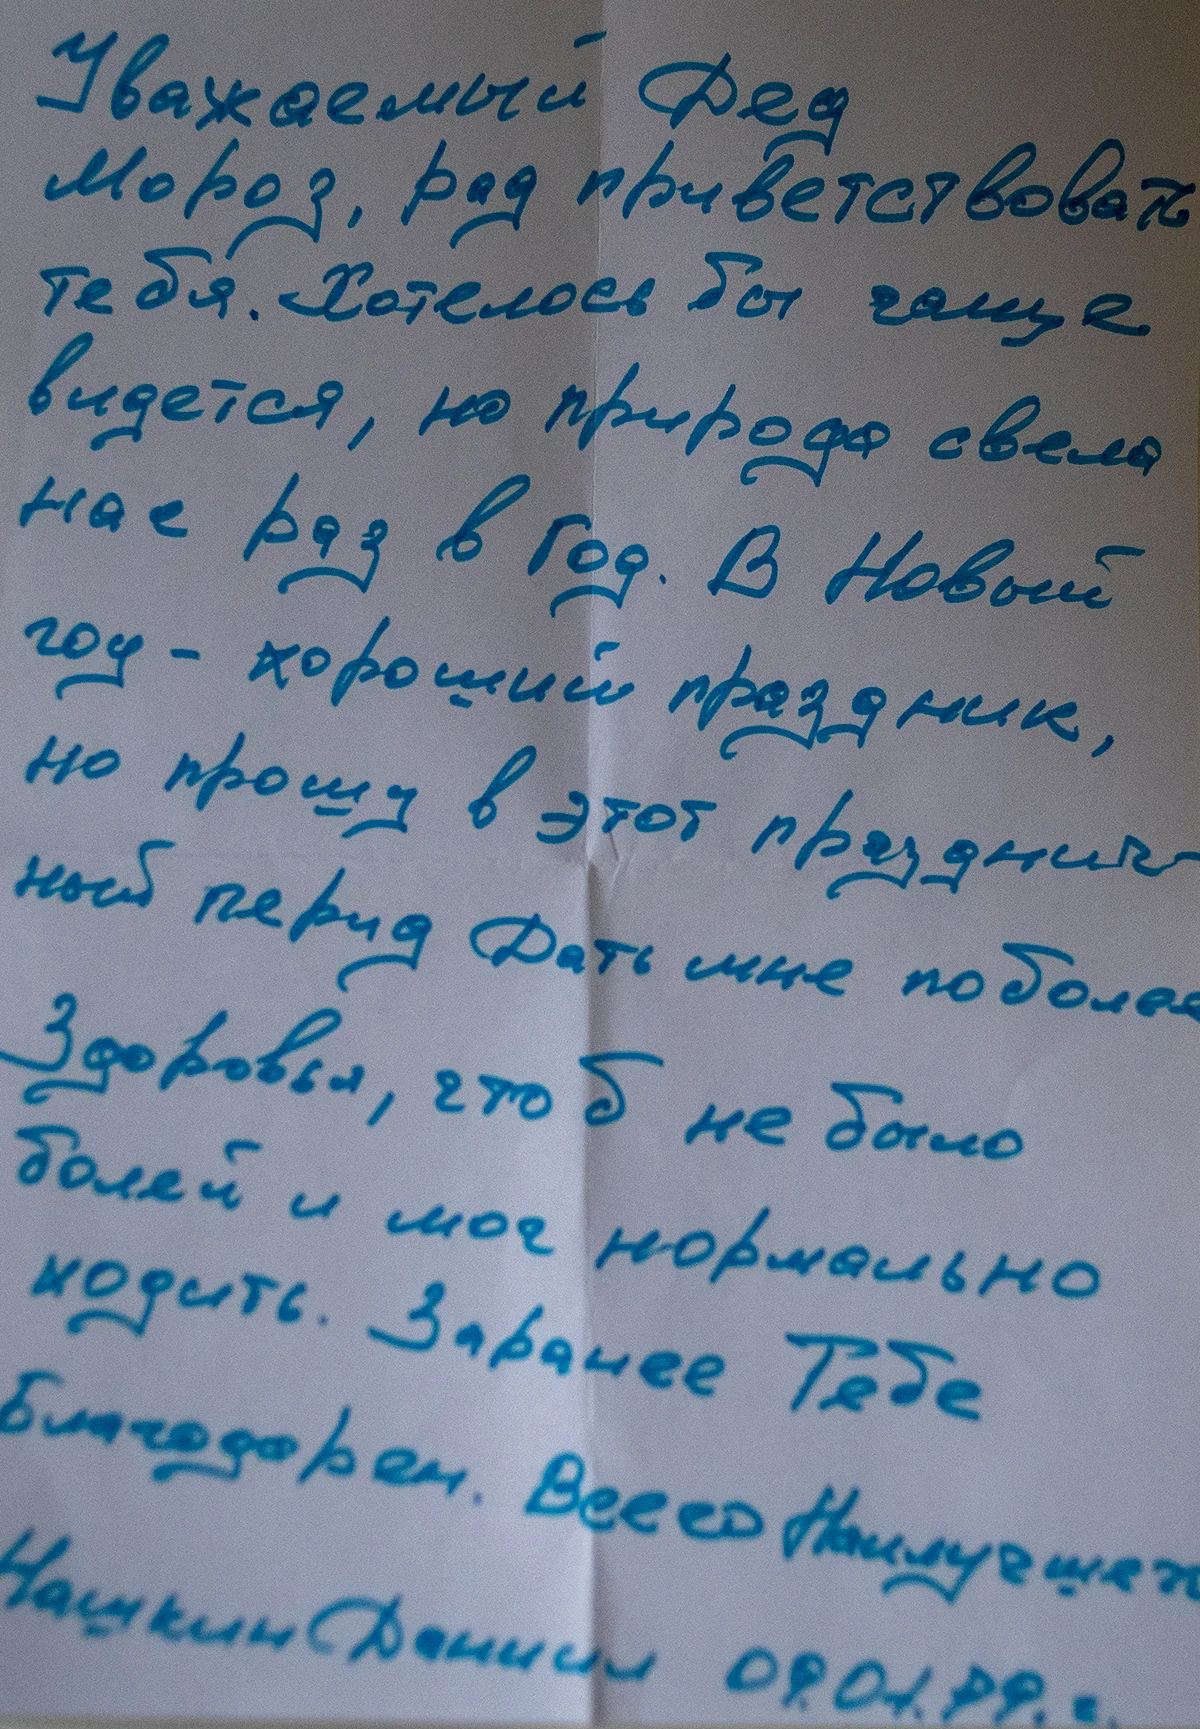 Уважаемый Дед
Мороз, рад приветствовать
тебя. Хотелось бы чаще
видется, но природа свела
нас раз в Год. В Новый
год - хороший праздник,
но прошу в этот празднич-
ный перид Дать мне поболее
Здоровья, что б не было
болей и мог нормально
ходить. Заранее Тебе
Благодарен. Всего Наилучшего
Нашкин Даниил